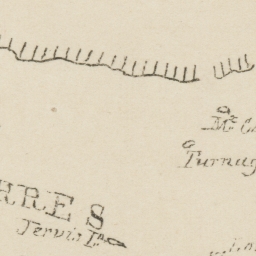 Mt
Turnag
RRES
Jervis Id